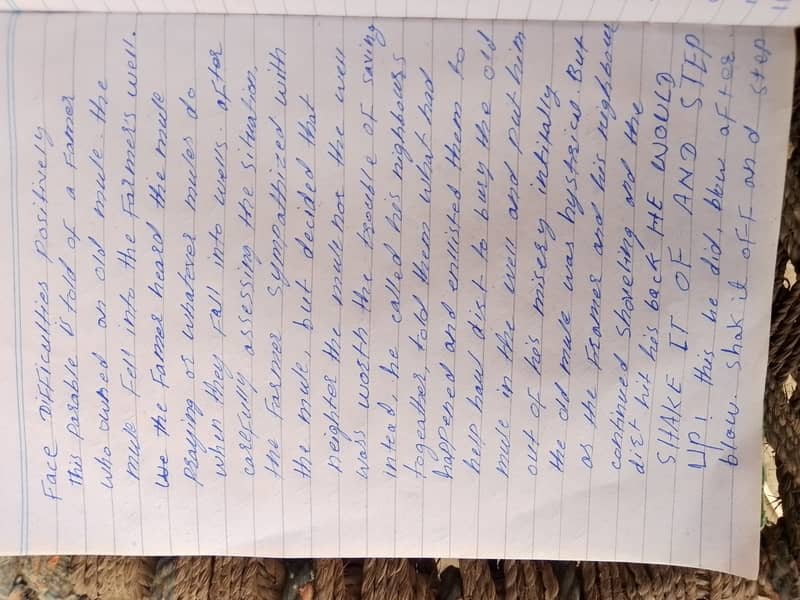 Face Difficulties Positively
this parable is told of a Famer
who owned an old mule. the
mule Fell into the Farmers well.
the Famer heard the mule
praying or whatever mules do
when they Fall into wells. after
carefully assessing the situation.
the Farmer sympathized with
the mule, but decided that
neighter the mule nor the well
was worth the trouble of saving
intead, he called his nighbours
togeather, told them what had
happened and enllisted them to
help haul dirt to bury the old
mule in the well and put him
out of his misery initally
the old mule was hystrical. But
as the Framer and his neighbour
continued shoveling and the
dirt hit his back HE WOULD
SHAKE IT OF AND STEP
UP! this he did, blow after
blow. Shak it oFF and step